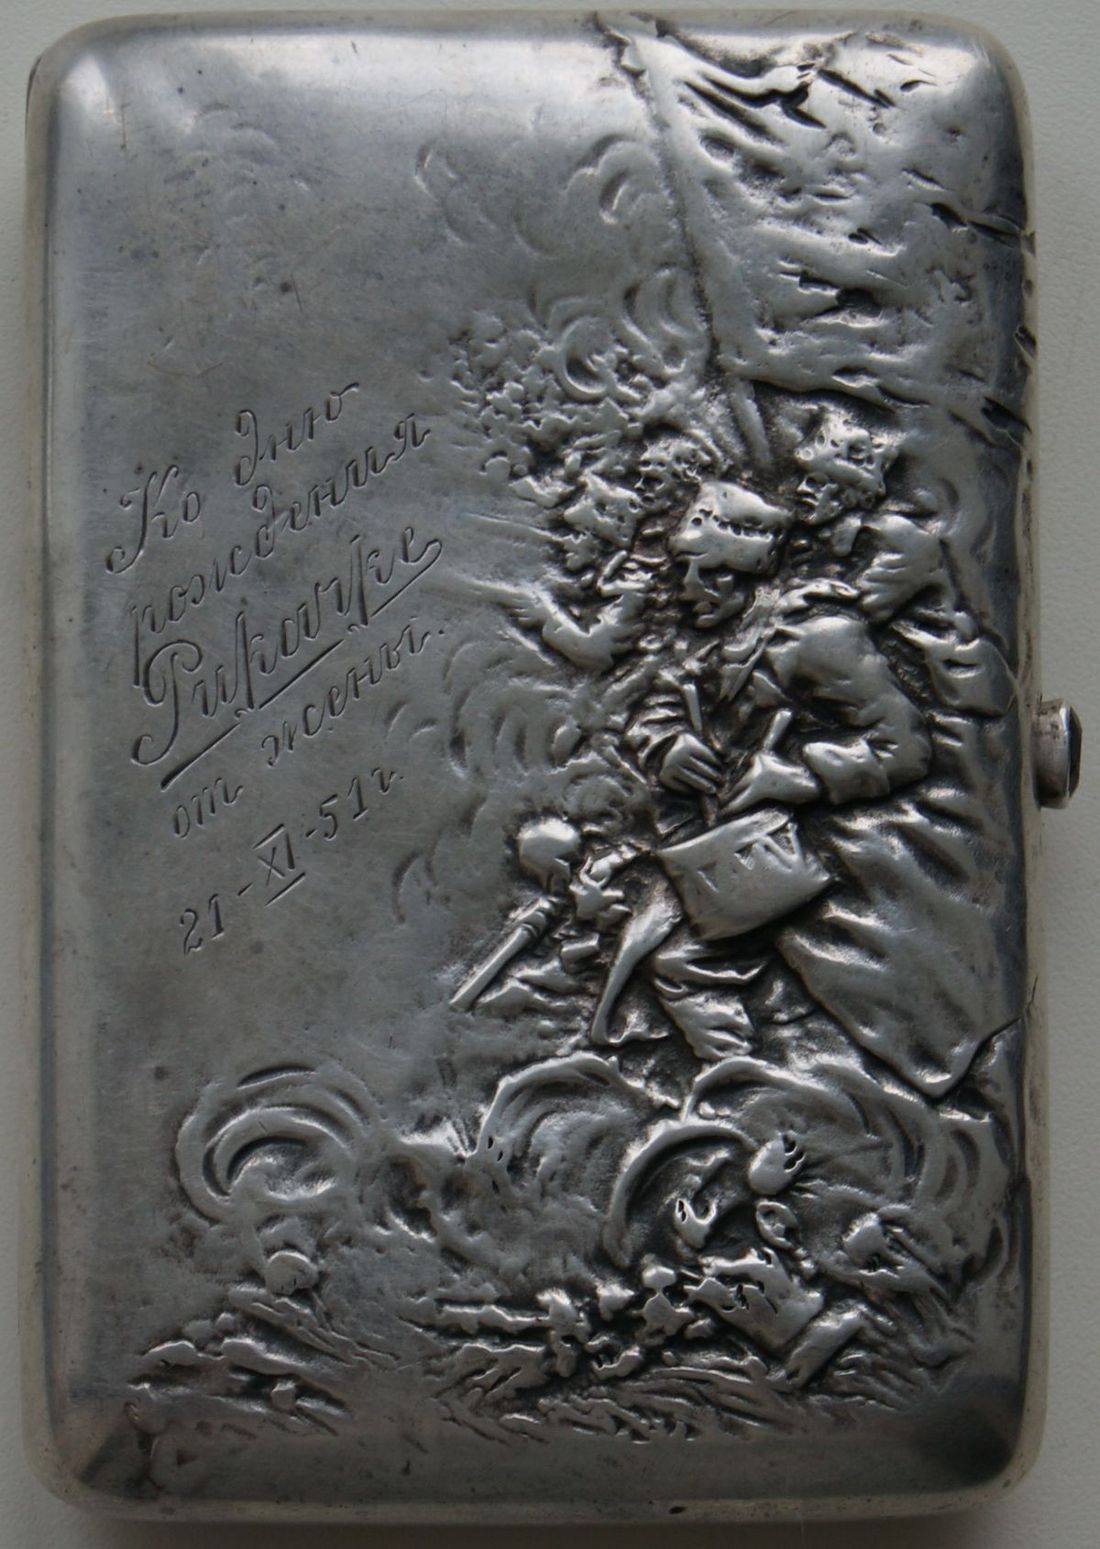 Ко дню
рождения
Рикочке
от жены.
21-XI-51г.